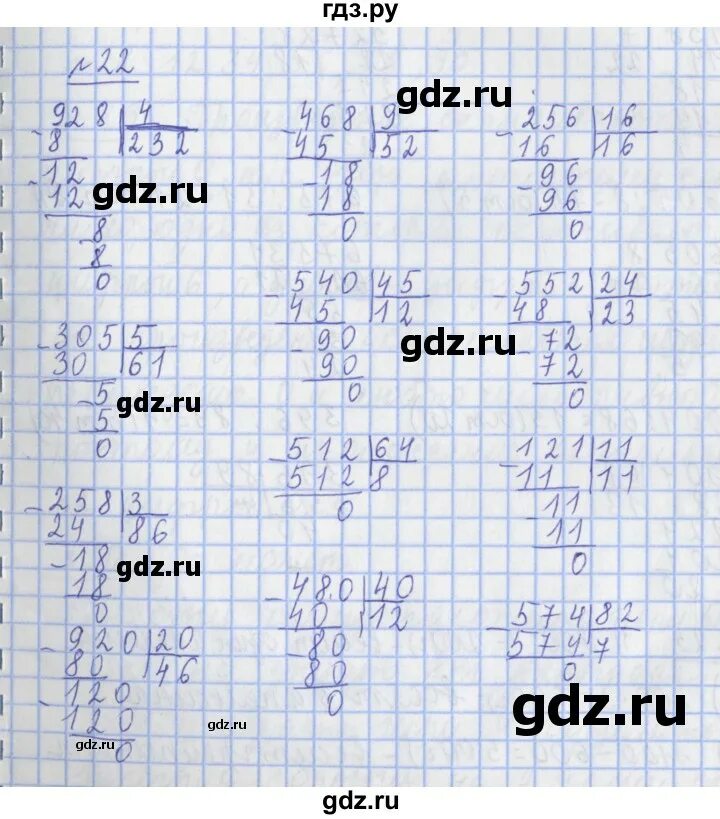 гдз.ру
№22
928 | 4
8 | 232
12
12
8
8
0
468 | 9
45 | 52
18
18
0
256 | 16
16 | 16
96
96
0
gdz.ru
gdz.ru
gdz.ru
305 | 5
30 | 61
5
5
0
540 | 45
45 | 12
90
90
0
552 | 24
48 | 23
72
72
0
gdz.ru
gdz.ru
gdz.ru
258 | 3
24 | 86
18
18
0
512 | 64
512 | 8
0
121 | 11
11 | 11
11
11
0
gdz.ru
gdz.ru
gdz.ru
920 | 20
80 | 46
120
120
0
480 | 40
40 | 12
80
80
0
574 | 82
574 7
0
gdz.ru
gdz.ru
gdz.ru